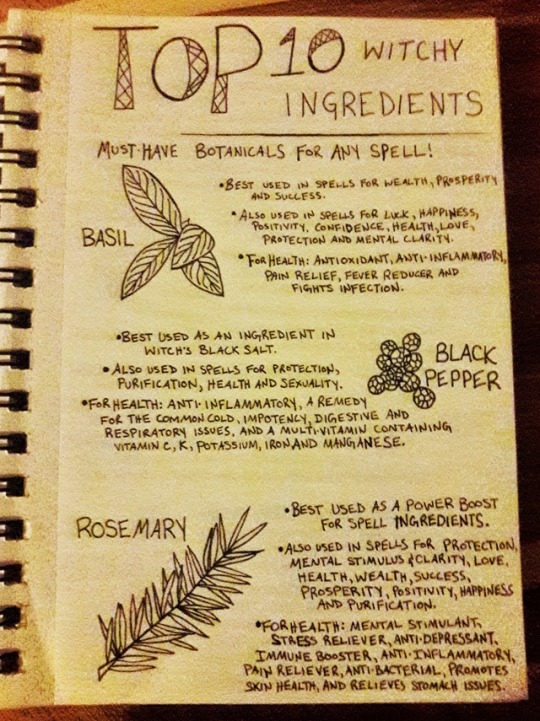 TOP 10 WITCHY
INGREDIENTS
MUST-HAVE BOTANICALS FOR ANY SPELL!
BASIL
•BEST USED IN SPELLS FOR WEALTH, PROSPERITY
AND SUCCESS.
•ALSO USED IN SPELLS FOR LUCK, HAPPINESS,
POSITIVITY, CONFIDENCE, HEALTH, LOVE,
PROTECTION AND MENTAL CLARITY.
•FOR HEALTH: ANTIOXIDANT, ANTI-INFLAMMATORY,
PAIN RELIEF, FEVER REDUCER AND
FIGHTS INFECTION.
BLACK
PEPPER
•BEST USED AS AN INGREDIENT IN
WITCH'S BLACK SALT.
•ALSO USED IN SPELLS FOR PROTECTION,
PURIFICATION, HEALTH AND SEXUALITY.
•FOR HEALTH: ANTI-INFLAMMATORY, A REMEDY
FOR THE COMMON COLD, IMPOTENCY, DIGESTIVE AND
RESPIRATORY ISSUES, AND A MULTI-VITAMIN CONTAINING
VITAMIN C, K, POTASSIUM, IRON, AND MANGANESE.
ROSEMARY
•BEST USED AS A POWER BOOST
FOR SPELL INGREDIENTS.
•ALSO USED IN SPELLS FOR PROTECTION,
MENTAL STIMULUS & CLARITY, LOVE,
HEALTH, WEALTH, SUCCESS,
PROSPERITY, POSITIVITY, HAPPINESS
AND PURIFICATION.
•FOR HEALTH: MENTAL STIMULANT,
STRESS RELIEVER, ANTI-DEPRESSANT,
IMMUNE BOOSTER, ANTI-INFLAMMATORY,
PAIN RELIEVER, ANTI-BACTERIAL, PROMOTES
SKIN HEALTH, AND RELIEVES STOMACH ISSUES.